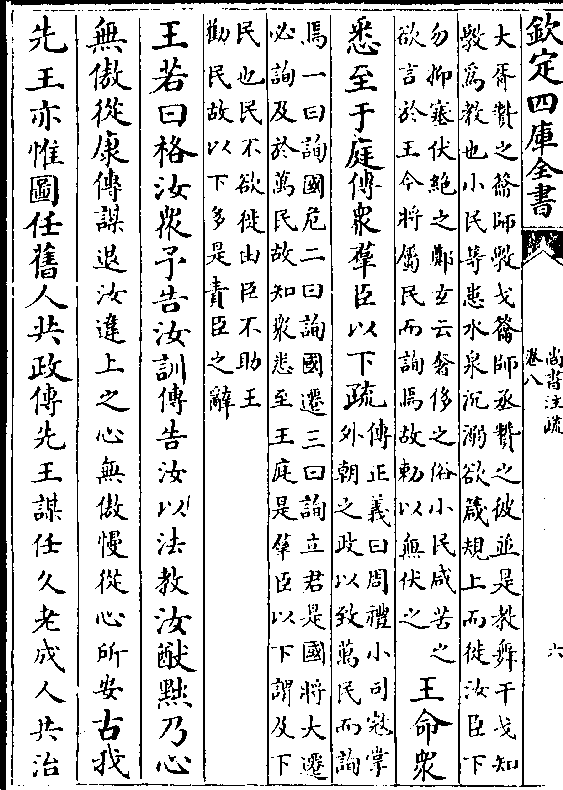 欽定四庫全書
尚書注疏
卷八
六
大胥贊之籥師斆戈籥師丞贊之彼並是教舞干戈知
斆為教也小民等患水泉沉溺欲箴規上而徙汝臣下
勿抑塞伏絶之鄭玄云奢侈之俗小民咸苦之
欲言於王今將屬民而詢焉故勅以無伏之
王命衆
悉至于庭傳衆羣臣以下疏
傳正義曰周禮小司冦掌
外朝之政以致萬民而詢
焉一曰詢國危二曰詢國遷三曰詢立君是國將大遷
必詢及於萬民故知衆悉至王庭是羣臣以下謂及下
民也民不欲徙由臣不助王
勸民故以下多是責臣之辭
王若曰格汝衆予告汝訓傳告汝以法教汝猷黜乃心
無傲從康傳謀退汝違上之心無傲慢從心所安古我
先王亦惟圖任舊人共政傳先王謀任久老成人共治